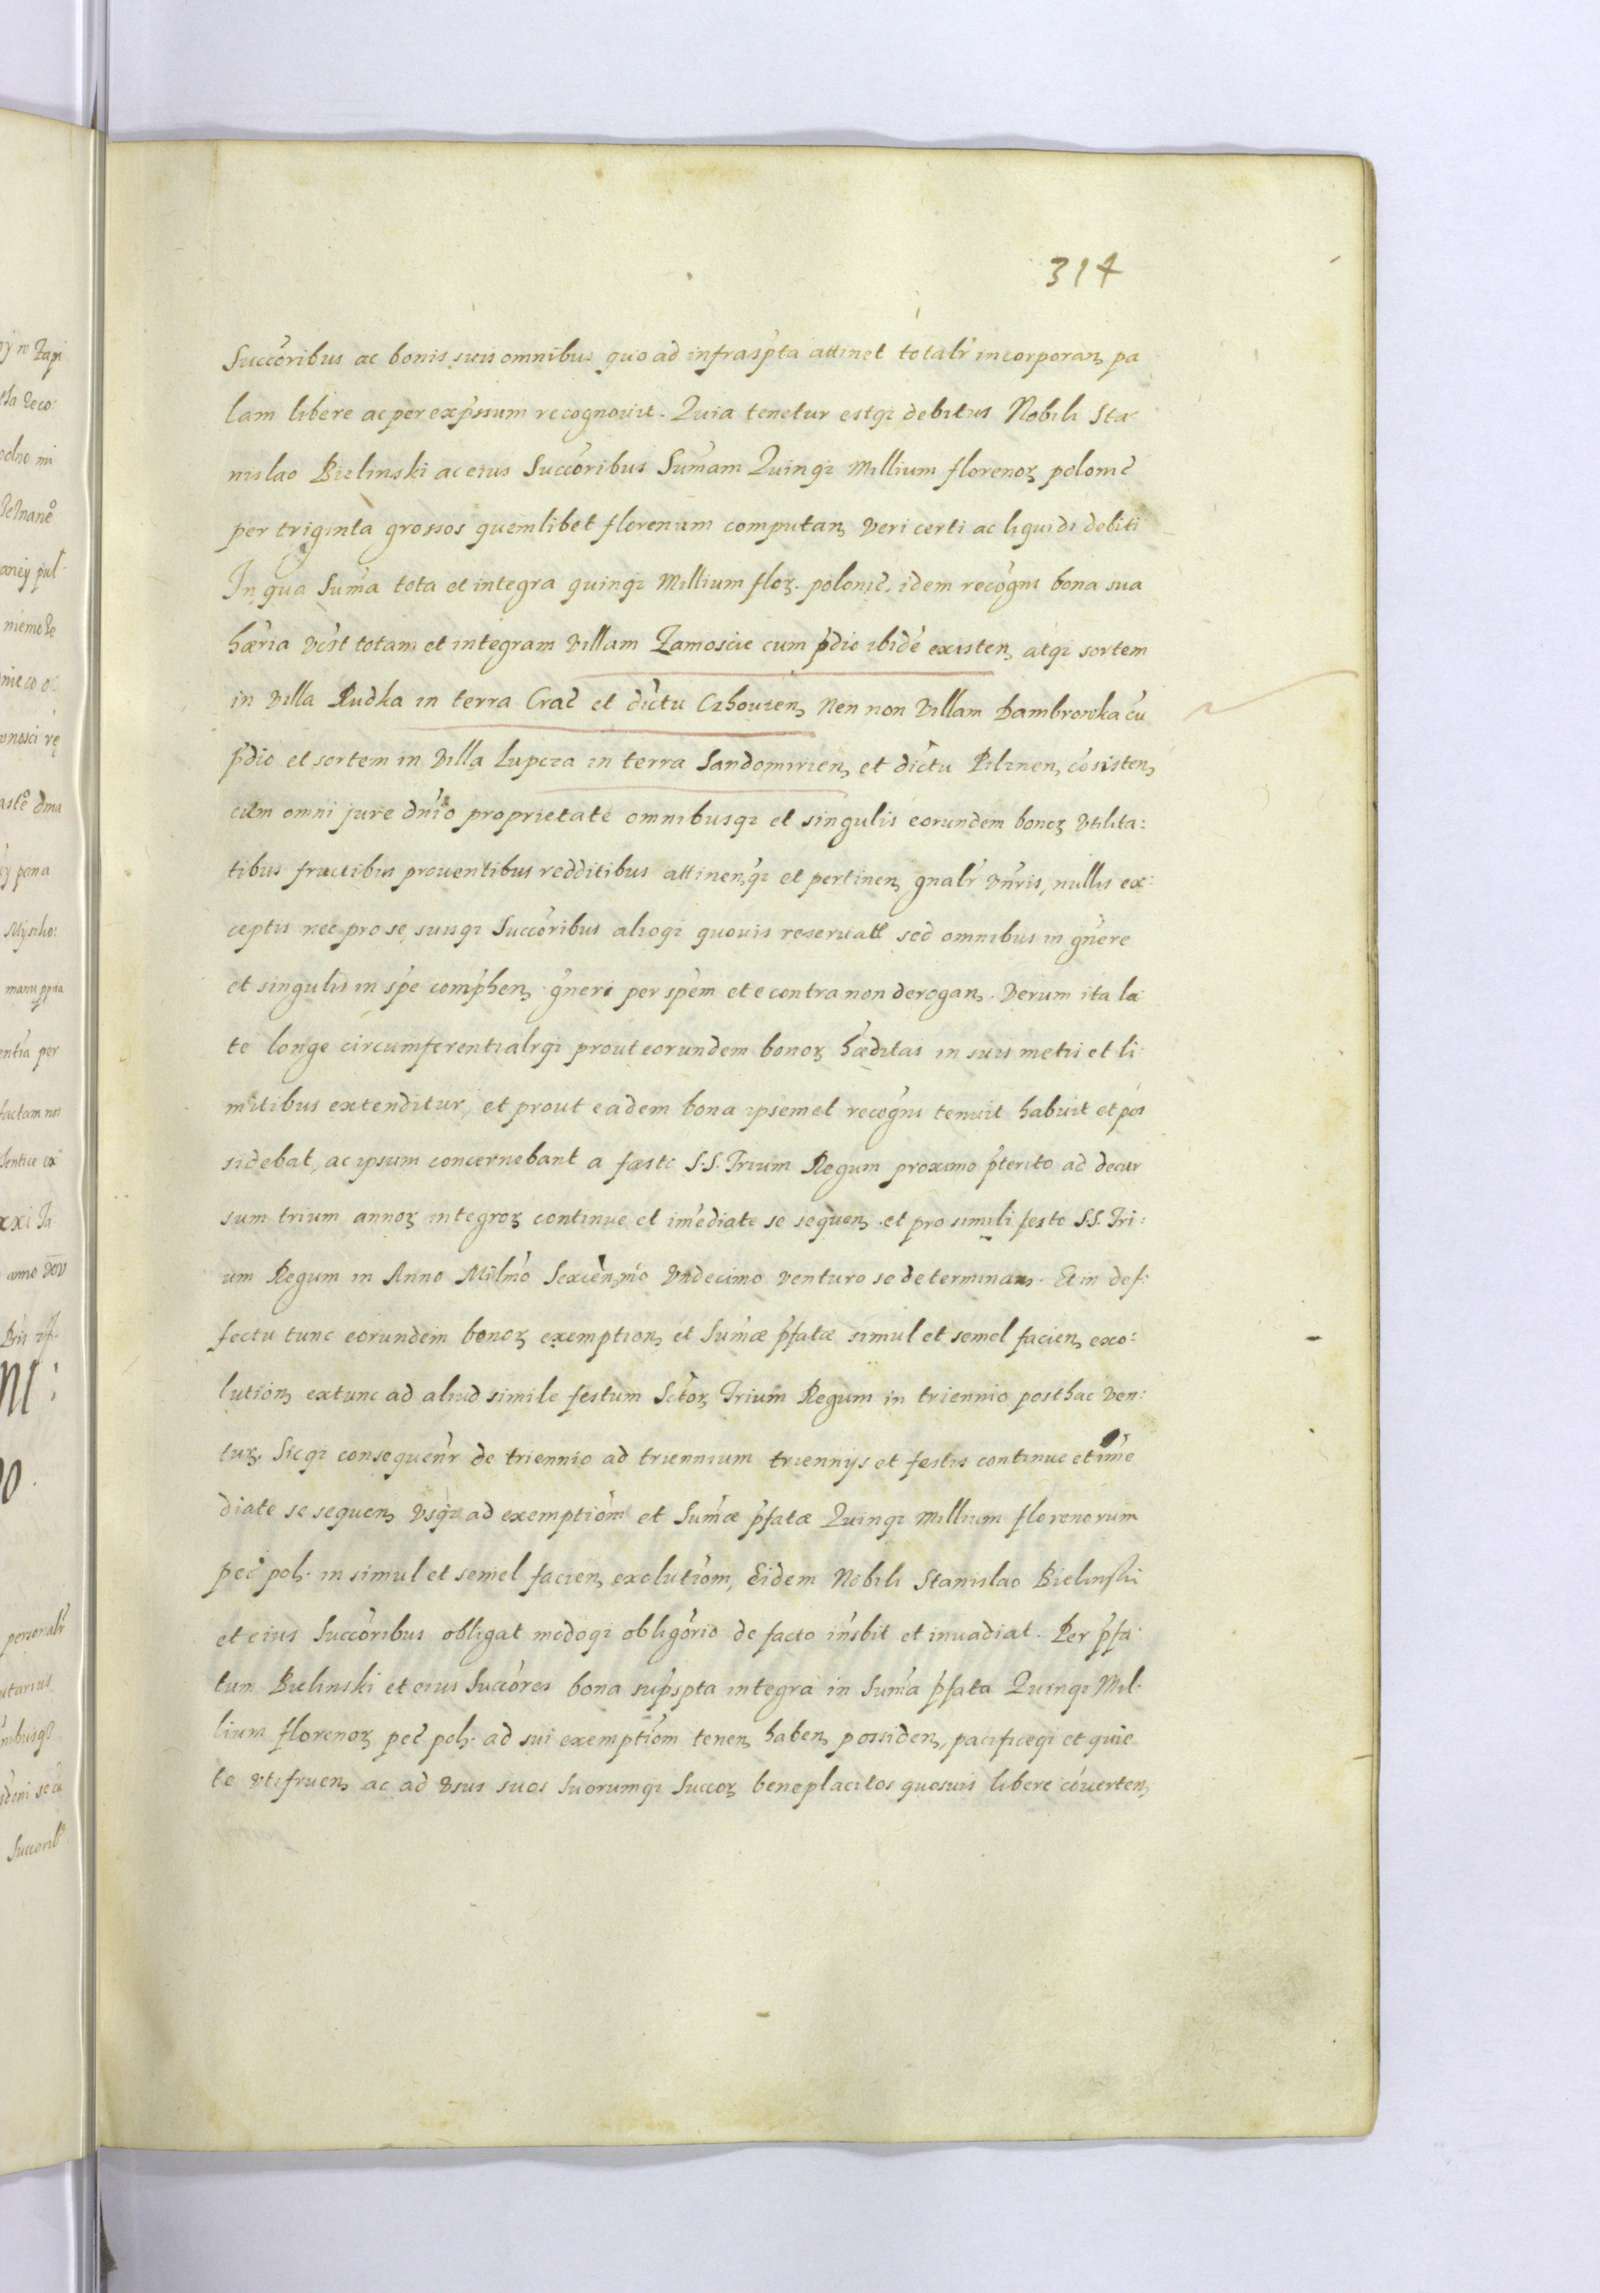 314
Succôribus ac bonis suis omnibus quo ad infrasp̃ta attinet totalr̃ incorporan, pa
lam libere ac per exp̃ssum recognouit. Quia tenetur estq3 debitus Nobili Sta-
nislao Bielinski ac eius Succoribus Sum̃am Quinq3 Millium florenoꝝ polonic̃
per triginta grossos quemlibet florenum computan, veri certi ac liquidi debiti
In qua Sum̃a tota et integra quinq3 Millium floꝝ. polonic̃. idem recogñs bona sua
hæria vc̃st totam et integram villam Zamoscie cum p̃dio ibidẽ existen, atq3 sortem
in villa Rudka in terra Crac̃ et dic̃tu Czhouien, Nen non villam Dambrowka cũ
p̃dio et sortem in villa Lupcza in terra Sandomirien, et dic̃tu Pilznen, cõsisten,
cum omni jure dñio proprietate omnibusq3 et singulis eorundem bonoꝝ vtilita:
tibus fructibus prouentibus redditibus attinen,q3 et pertinen, gñalr̃ vñris, nullis ex:
ceptis nec pro se suisq3 Succoribus alioq3 quouis reseruatt sed omnibus in gñere
et singulis in sp̃e comp̃hen, gñeri per sp̃em et e contra non derogan,. Verum ita la
te longe circumferentialrq3 prout eorundem bonoꝝ hæditas in suis metis et li:
mitibus extenditur, et prout eadem bona ipsemet recogñs tenuit habuit et pos
sidebat, ac ipsum concernebant a fæsto S.S. Trium Regum proximo p̃terito ad decur
sum trium annoꝝ integroꝝ continue et im̃ediate se sequen, et pro simili festo S.S. Tri:
um Regum in Anno Milm̃o Sexcen,mo Vndecimo venturo se determinan,. Et in def:
fectu tunc eorundem bonoꝝ exemption, et Sum̃æ p̃fatæ simul et semel facien, exo:
lution, extunc ad aliud simile festum Sc̃toꝝ Trium Regum in triennio posthac ven:
tuꝝ. Sicq3 consequenr̃ de triennio ad triennium triennÿs et festis continue et im̃e
diate se sequen, vsq3 ad exemptiõm et Sum̃æ p̃fatæ Quinq3 Millium florenorum
pec̃ pol,. in simul et semel facien, exolutiõm, Eidem Nobili Stanislao Bielinski
et eius Succoribus obligat modoq3 obligorio de facto iñsbit et inuadiat. Per p̃fa:
tum Bielinski et eius Succores bona sup̃sp̃ta integra in Sum̃a p̃fata Quinq3 Mil-
lium florenoꝝ pec̃ pol,. ad sui exemptiõm tenen, haben, possiden, pacificeq3 et quie
te vtifruen, ac ad vsus suos Suorumq3 Succoꝝ beneplacitos quosuis libere cõuerten,